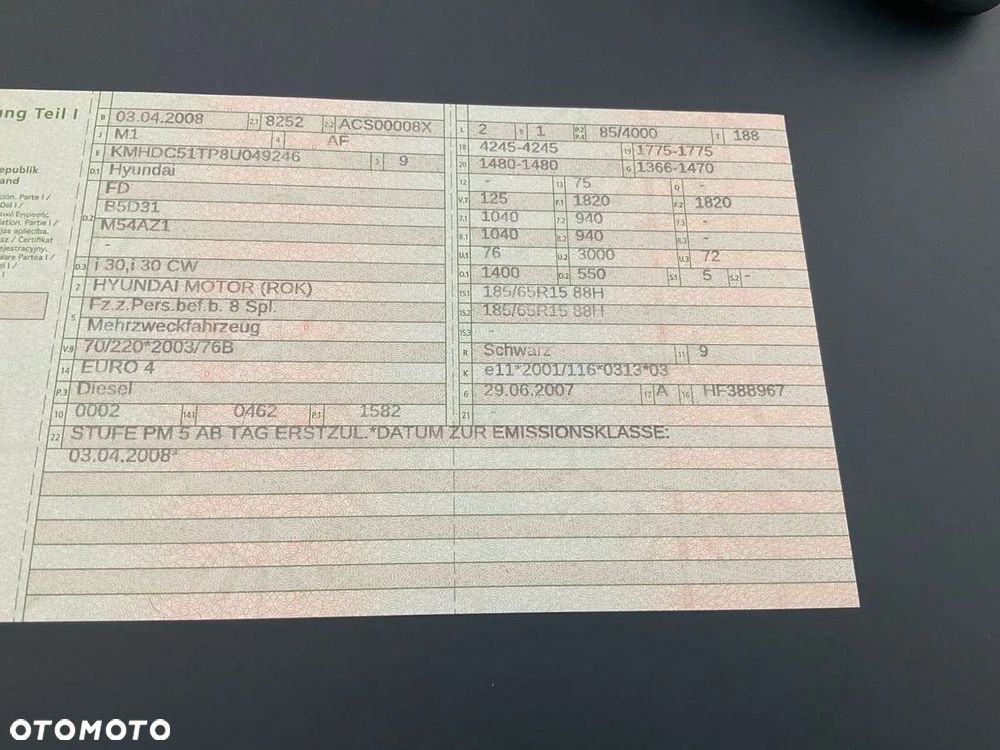 ung Teil I
epublik
and
B 03.04.2008 2.1 8252 2.2 ACS00008X
J M1 4 AF
E KMHDC51TP8U049246 3 9
D.1 Hyundai
FD
D.2 B5D31
M54AZ1
-
D.3 i 30,i 30 CW
2 HYUNDAI MOTOR (ROK)
5 Fz.z.Pers.bef.b. 8 Spl.
Mehrzweckfahrzeug
V.9 70/220*2003/76B
14 EURO 4
P.3 Diesel
10 0002 14.1 0462 P.1 1582
L 2 9 1 P.2 P.4 85/4000 T 188
18 4245-4245 19 1775-1775
20 1480-1480 G 1366-1470
12 - 13 75 Q -
V.7 125 F.1 1820 F.2 1820
7.1 1040 7.2 940 7.3 -
8.1 1040 8.2 940 8.3 -
U.1 76 U.2 3000 U.3 72
O.1 1400 O.2 550 S.1 5 S.2 -
15.1 185/65R15 88H
15.2 185/65R15 88H
15.3 -
R Schwarz 11 9
K e11*2001/116*0313*03
6 29.06.2007 17 A 16 HF388967
21 -
22 STUFE PM 5 AB TAG ERSTZUL.*DATUM ZUR EMISSIONSKLASSE:
03.04.2008*
OTOMOTO